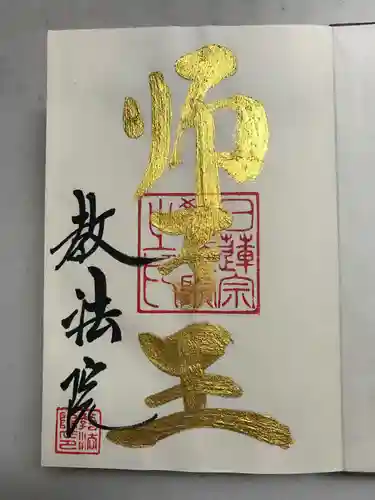 师子王
教法院
日蓮宗
之印